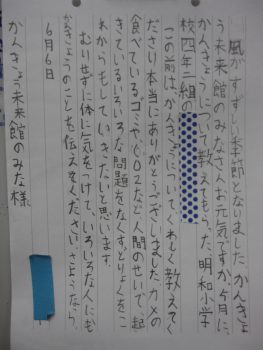 風がすずしい季節となりました。かんきょ
う未来館のみなさんお元気ですか。今月に、
かんきょうについて教えてもらった、明和小学
校四年二組の
この前は、かんきょうについてくわしく教えてく
ださり本当にありがとうございました。カメの
食べているゴミやCO2など人間のせいで、起
きているいろいろな問題をなくすどりょくをこ
れからもしていきたいと思います。
むりせずに体に気をつけて、いろいろな人にも
かんきょうのことも伝えてください。さようなら。
6月6日
かんきょう未来館のみな様